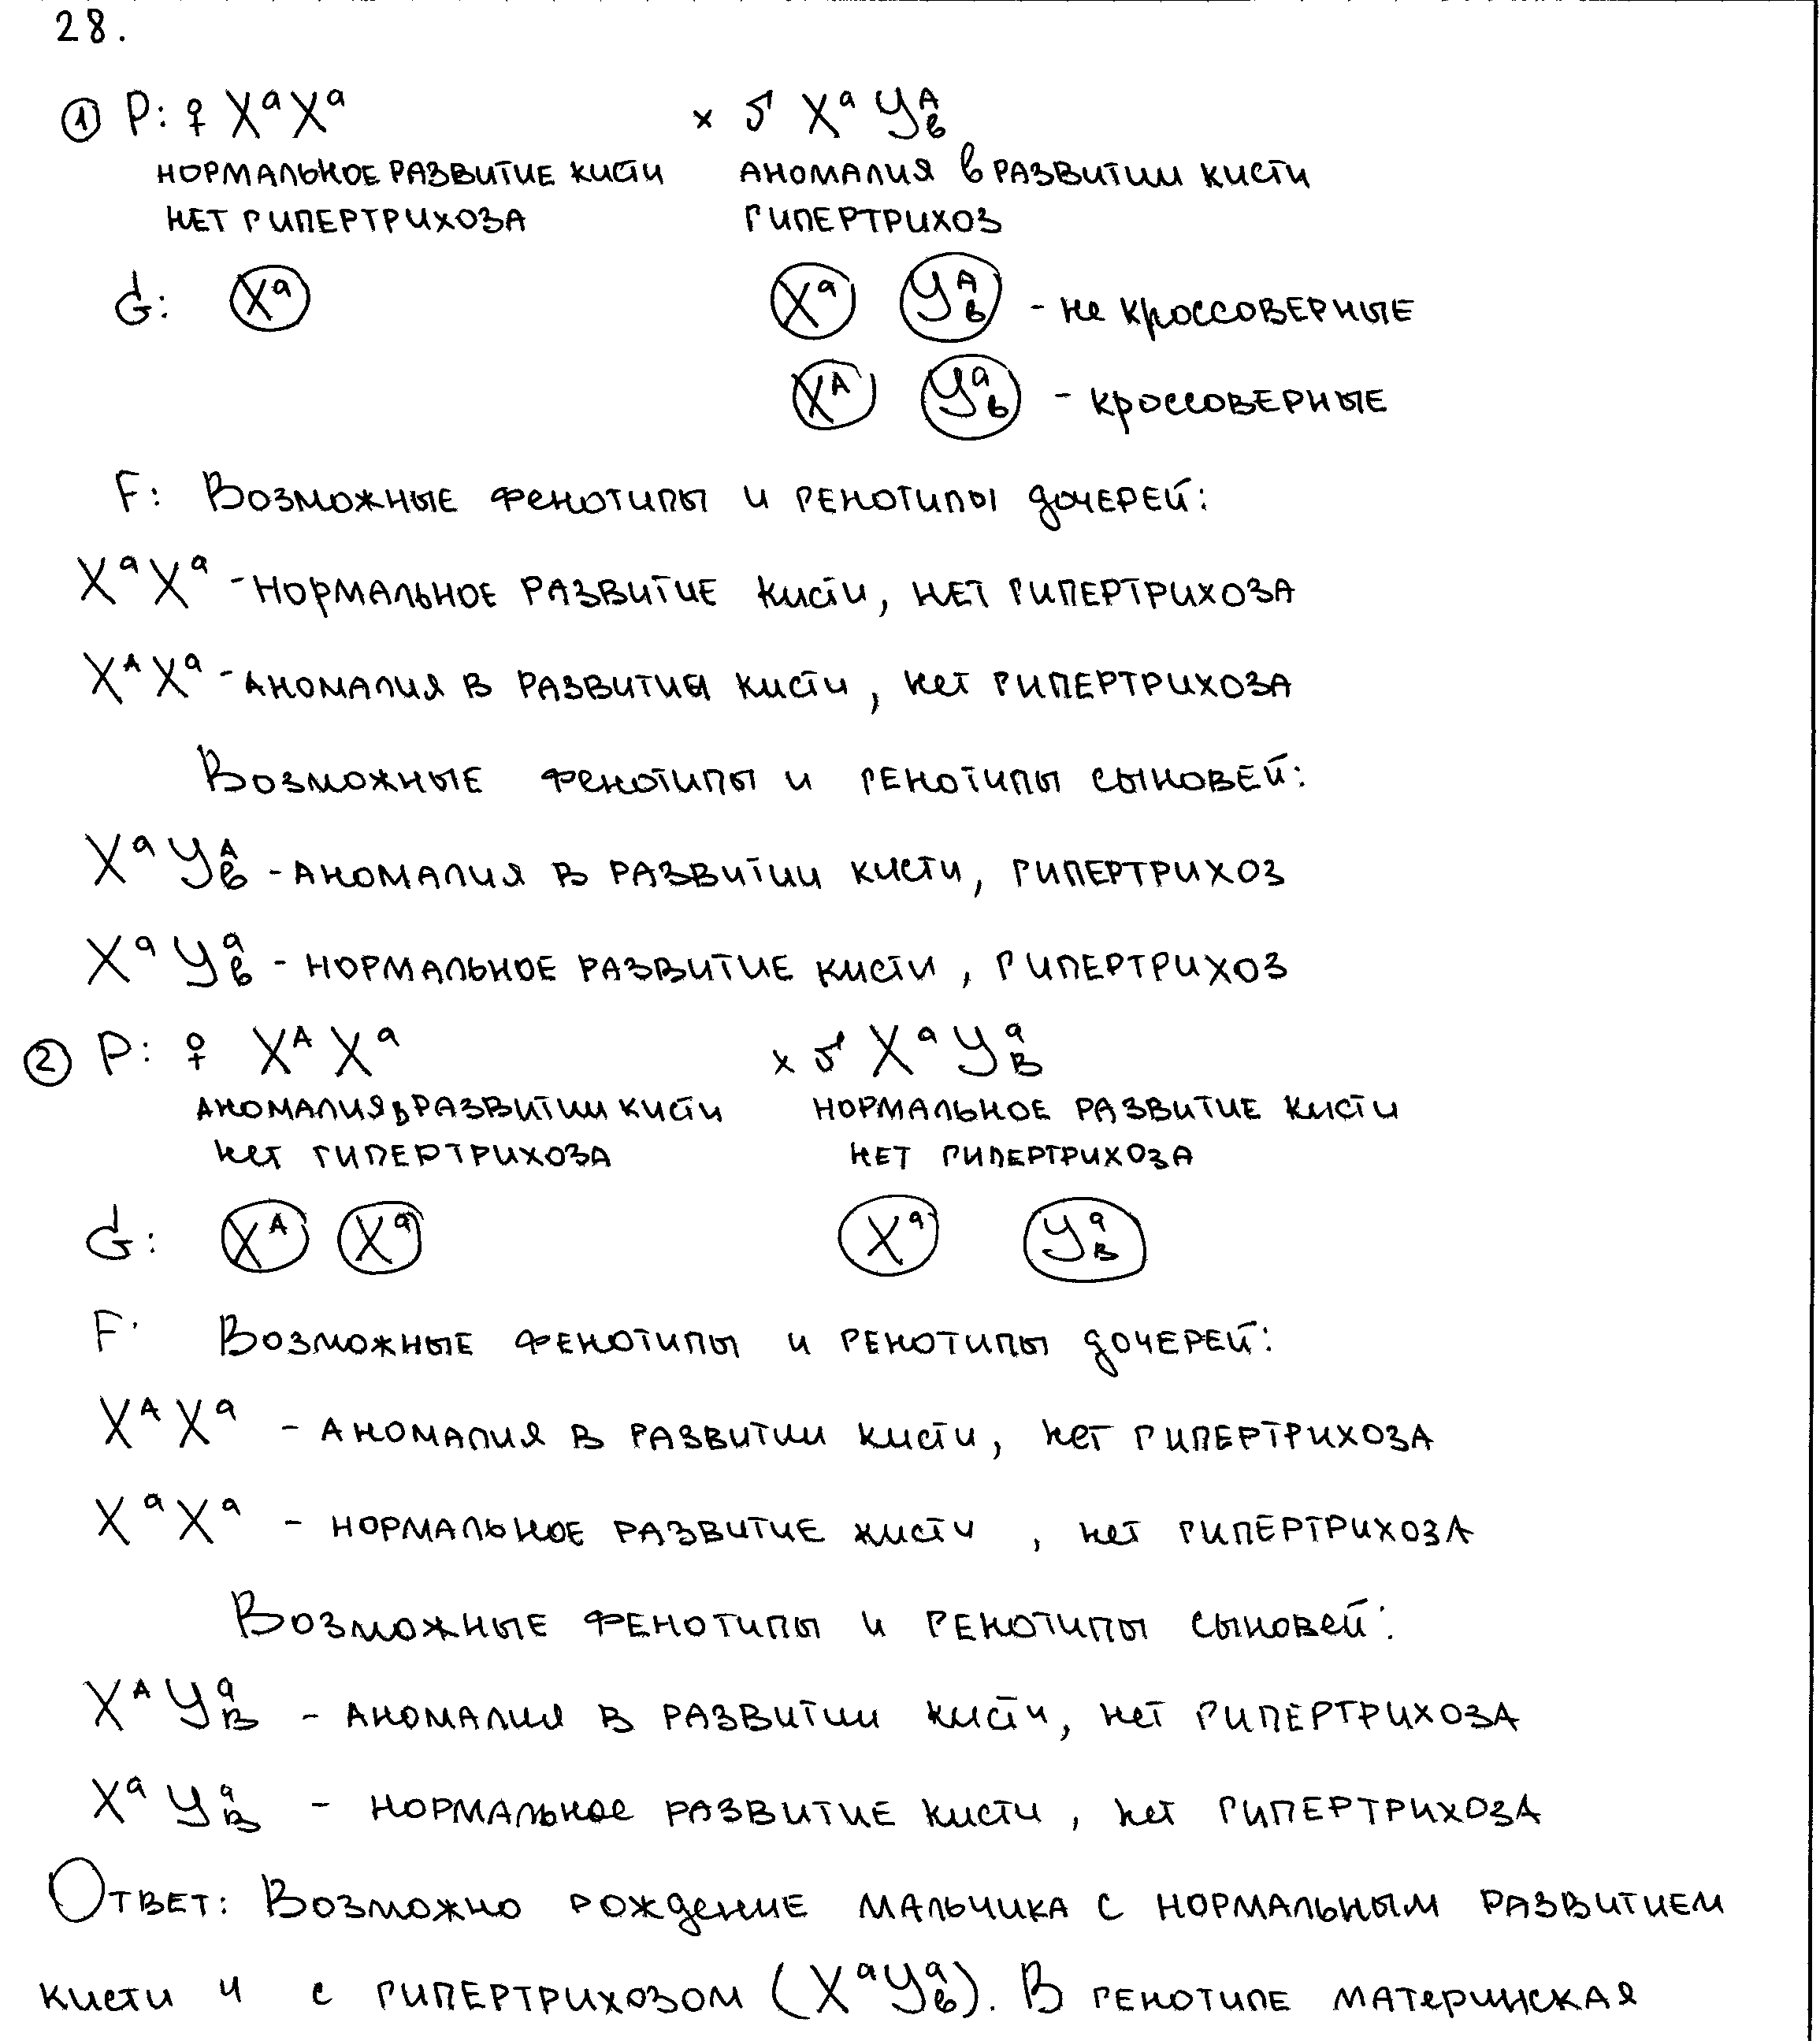 28.
① P: ♀ XᵃXᵃ × ♂ XᵃYᴬв
нормальное развитие кисти аномалия в развитии кисти
нет гипертрихоза гипертрихоз
G: Xᵃ Xᵃ Yᴬв - не кроссоверные
Xᴬ Yᵃв - кроссоверные
F: Возможные фенотипы и генотипы дочерей:
XᵃXᵃ - нормальное развитие кисти, нет гипертрихоза
XᴬXᵃ - аномалия в развитии кисти, нет гипертрихоза
Возможные фенотипы и генотипы сыновей:
XᵃYᴬв - аномалия в развитии кисти, гипертрихоз
XᵃYᵃв - нормальное развитие кисти, гипертрихоз
② P: ♀ XᴬXᵃ × ♂ XᵃYᵃВ
аномалия в развитии кисти нормальное развитие кисти
нет гипертрихоза нет гипертрихоза
G: Xᴬ Xᵃ Xᵃ YᵃВ
F: Возможные фенотипы и генотипы дочерей:
XᴬXᵃ - аномалия в развитии кисти, нет гипертрихоза
XᵃXᵃ - нормальное развитие кисти, нет гипертрихоза
Возможные фенотипы и генотипы сыновей:
XᴬYᵃВ - аномалия в развитии кисти, нет гипертрихоза
XᵃYᵃВ - нормальное развитие кисти, нет гипертрихоза
Ответ: Возможно рождение мальчика с нормальным развитием
кисти и с гипертрихозом (XᵃYᵃв). В генотипе материнская